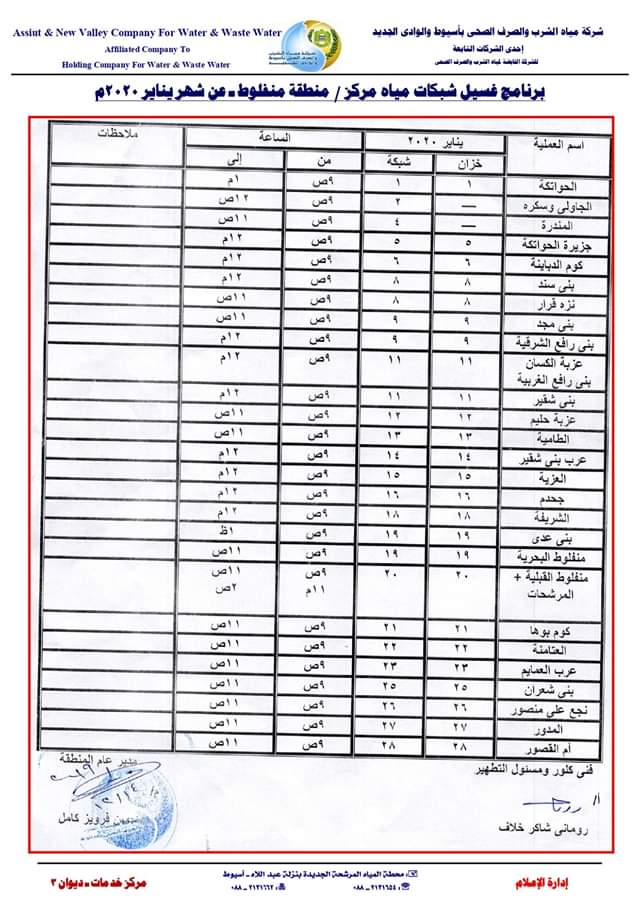 Assiut & New Valley Company For Water & Waste Water
Affiliated Company To
Holding Company For Water & Waste Water
شركة مياه الشرب والصرف الصحى بأسيوط والوادى الجديد
إحدى الشركات التابعة
للشركة القابضة لمياه الشرب والصرف الصحى
برنامج غسيل شبكات مياه مركز / منطقة منفلوط - عن شهر يناير ٢٠٢٠م
اسم العملية يناير ٢٠٢٠ الساعة ملاحظات
خزان شبكة من إلى
الحواتكة ١ ١ ٩ص ١م
الجاولى وسكره — ٢ ٩ص ١٢ص
المندرة — ٤ ٩ص ١١ص
جزيرة الحواتكة ٥ ٥ ٩ص ١٢م
كوم الدباينة ٦ ٦ ٩ص ١٢م
بنى سند ٨ ٨ ٩ص ١٢م
نزه قرار ٨ ٨ ٩ص ١١ص
بنى مجد ٩ ٩ ٩ص ١١ص
بنى رافع الشرقية ٩ ٩ ٩ص ١٢م
عزبة الكسان ١١ ١١ ٩ص ١٢م
بنى رافع الغربية
بنى شقير ١١ ١١ ٩ص ١٢م
عزبة حليم ١٢ ١٢ ٩ص ١١ص
الطامية ١٣ ١٣ ٩ص ١١ص
عرب بنى شقير ١٤ ١٤ ٩ص ١٢م
العزية ١٥ ١٥ ٩ص ١٢م
جحدم ١٦ ١٦ ٩ص ١٢م
الشريفة ١٨ ١٨ ٩ص ١٢م
بنى عدى ١٩ ١٩ ٩ص ١ظ
منفلوط البحرية ١٩ ١٩ ٩ص ١١ص
منفلوط القبلية + ٢٠ ٢٠ ٩ص ١١ص
المرشحات ١١م ٢ص
كوم بوها ٢١ ٢١ ٩ص ١١ص
العتامنة ٢٢ ٢٢ ٩ص ١١ص
عرب العمايم ٢٣ ٢٣ ٩ص ١١ص
بنى شعران ٢٥ ٢٥ ٩ص ١١ص
نجع على منصور ٢٦ ٢٦ ٩ص ١١ص
المدور ٢٧ ٢٧ ٩ص ١١ص
أم القصور ٢٨ ٢٨ ٩ص ١١ص
فنى كلور ومسئول التطهير
مدير عام المنطقة
أ/
م/
رومانى شاكر خلاف
فرويز كامل
محطة المياه المرشحة الجديدة بنزلة عبد اللاه - أسيوط
٢١٢١٦٥٤ - ٠٨٨
٢١٢١٦٦٢ - ٠٨٨
إدارة الإعلام
مركز خدمات - ديوان ٣